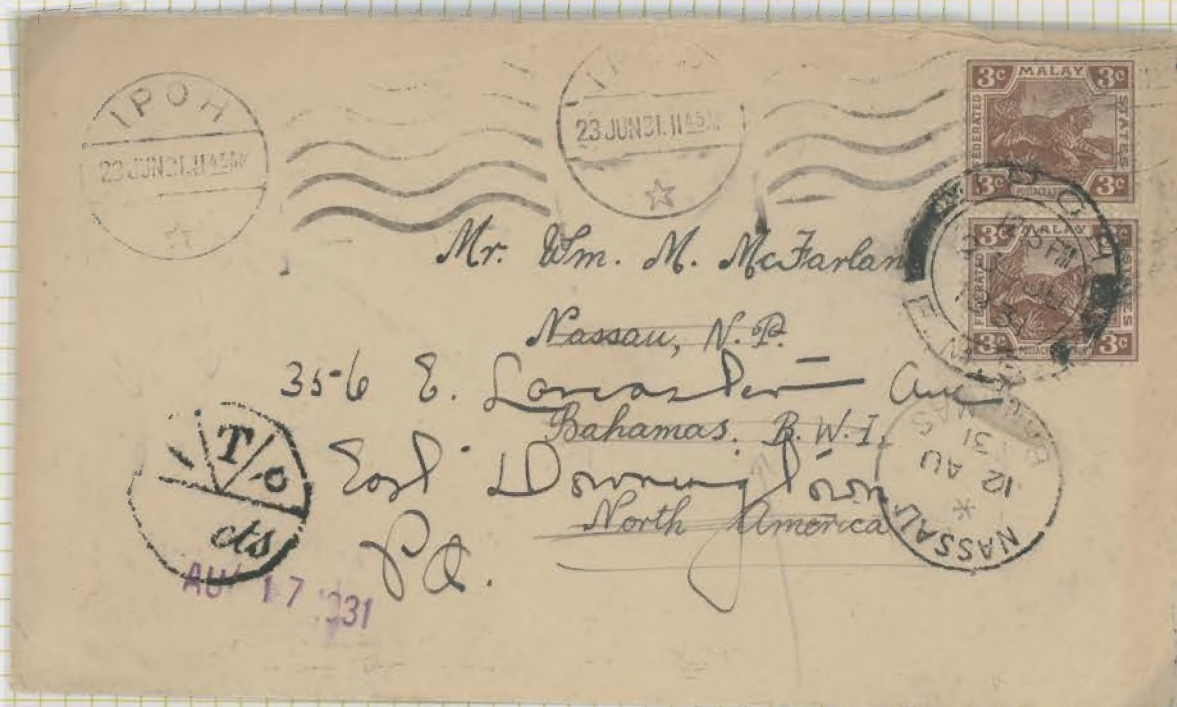 IPOH
23 JUN 31. 11 45 AM
IPOH
23 JUN 31. 11 45 AM
3c MALAY 3c
FEDERATED
STATES
3c POSTAGE & REVENUE 3c
3c MALAY 3c
FEDERATED
STATES
3c POSTAGE & REVENUE 3c
Mr. Wm. M. McFarlan
Nassau, N.P.
356 E. Lancaster Ave
Bahamas. B.W.I.
East Downingtown
North America
Pa.
NASSAU
12 AU
31
BAHAMAS
T/o
cts
AU 17 1931